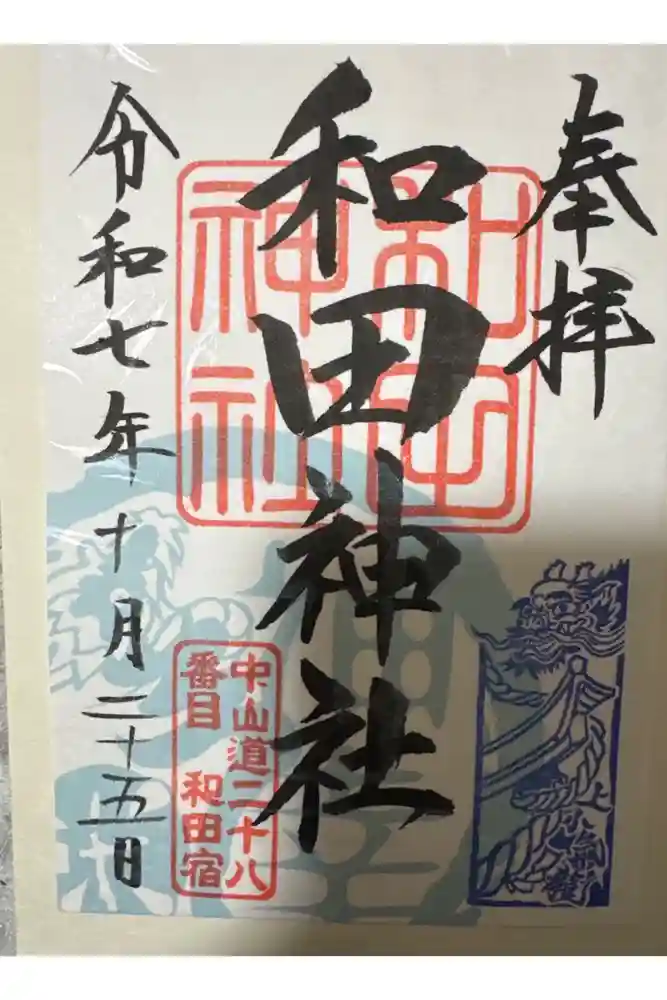 奉拝
和田神社
和田
神社
中山道二十八
番目 和田宿
令和七年十月二十五日